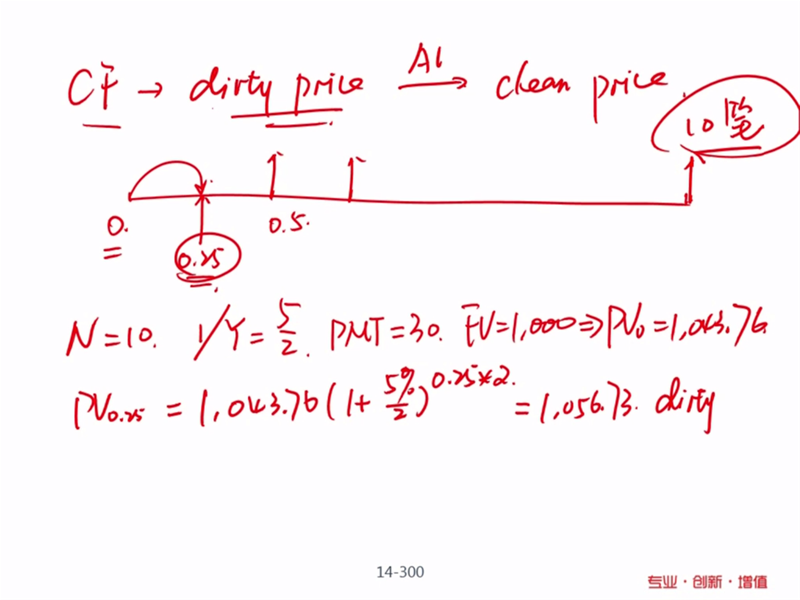 CF → dirty price AI → clean price
10笔
0. 0.25 0.5.
N=10. I/Y=5/2. PMT=30. FV=1,000⇒PV₀=1,043.76
PV₀.₂₅ = 1,043.76(1+5%/2)^0.25*2. = 1,056.73. dirty
14-300
专业·创新·增值